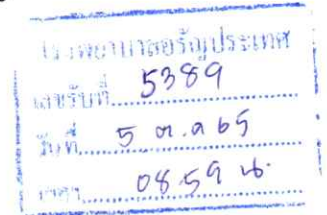 โรงพยาบาลอรัญประเทศ
เลขรับที่ 5389
วันที่ 5 ต.ค 65
เวลา 08.59 น.